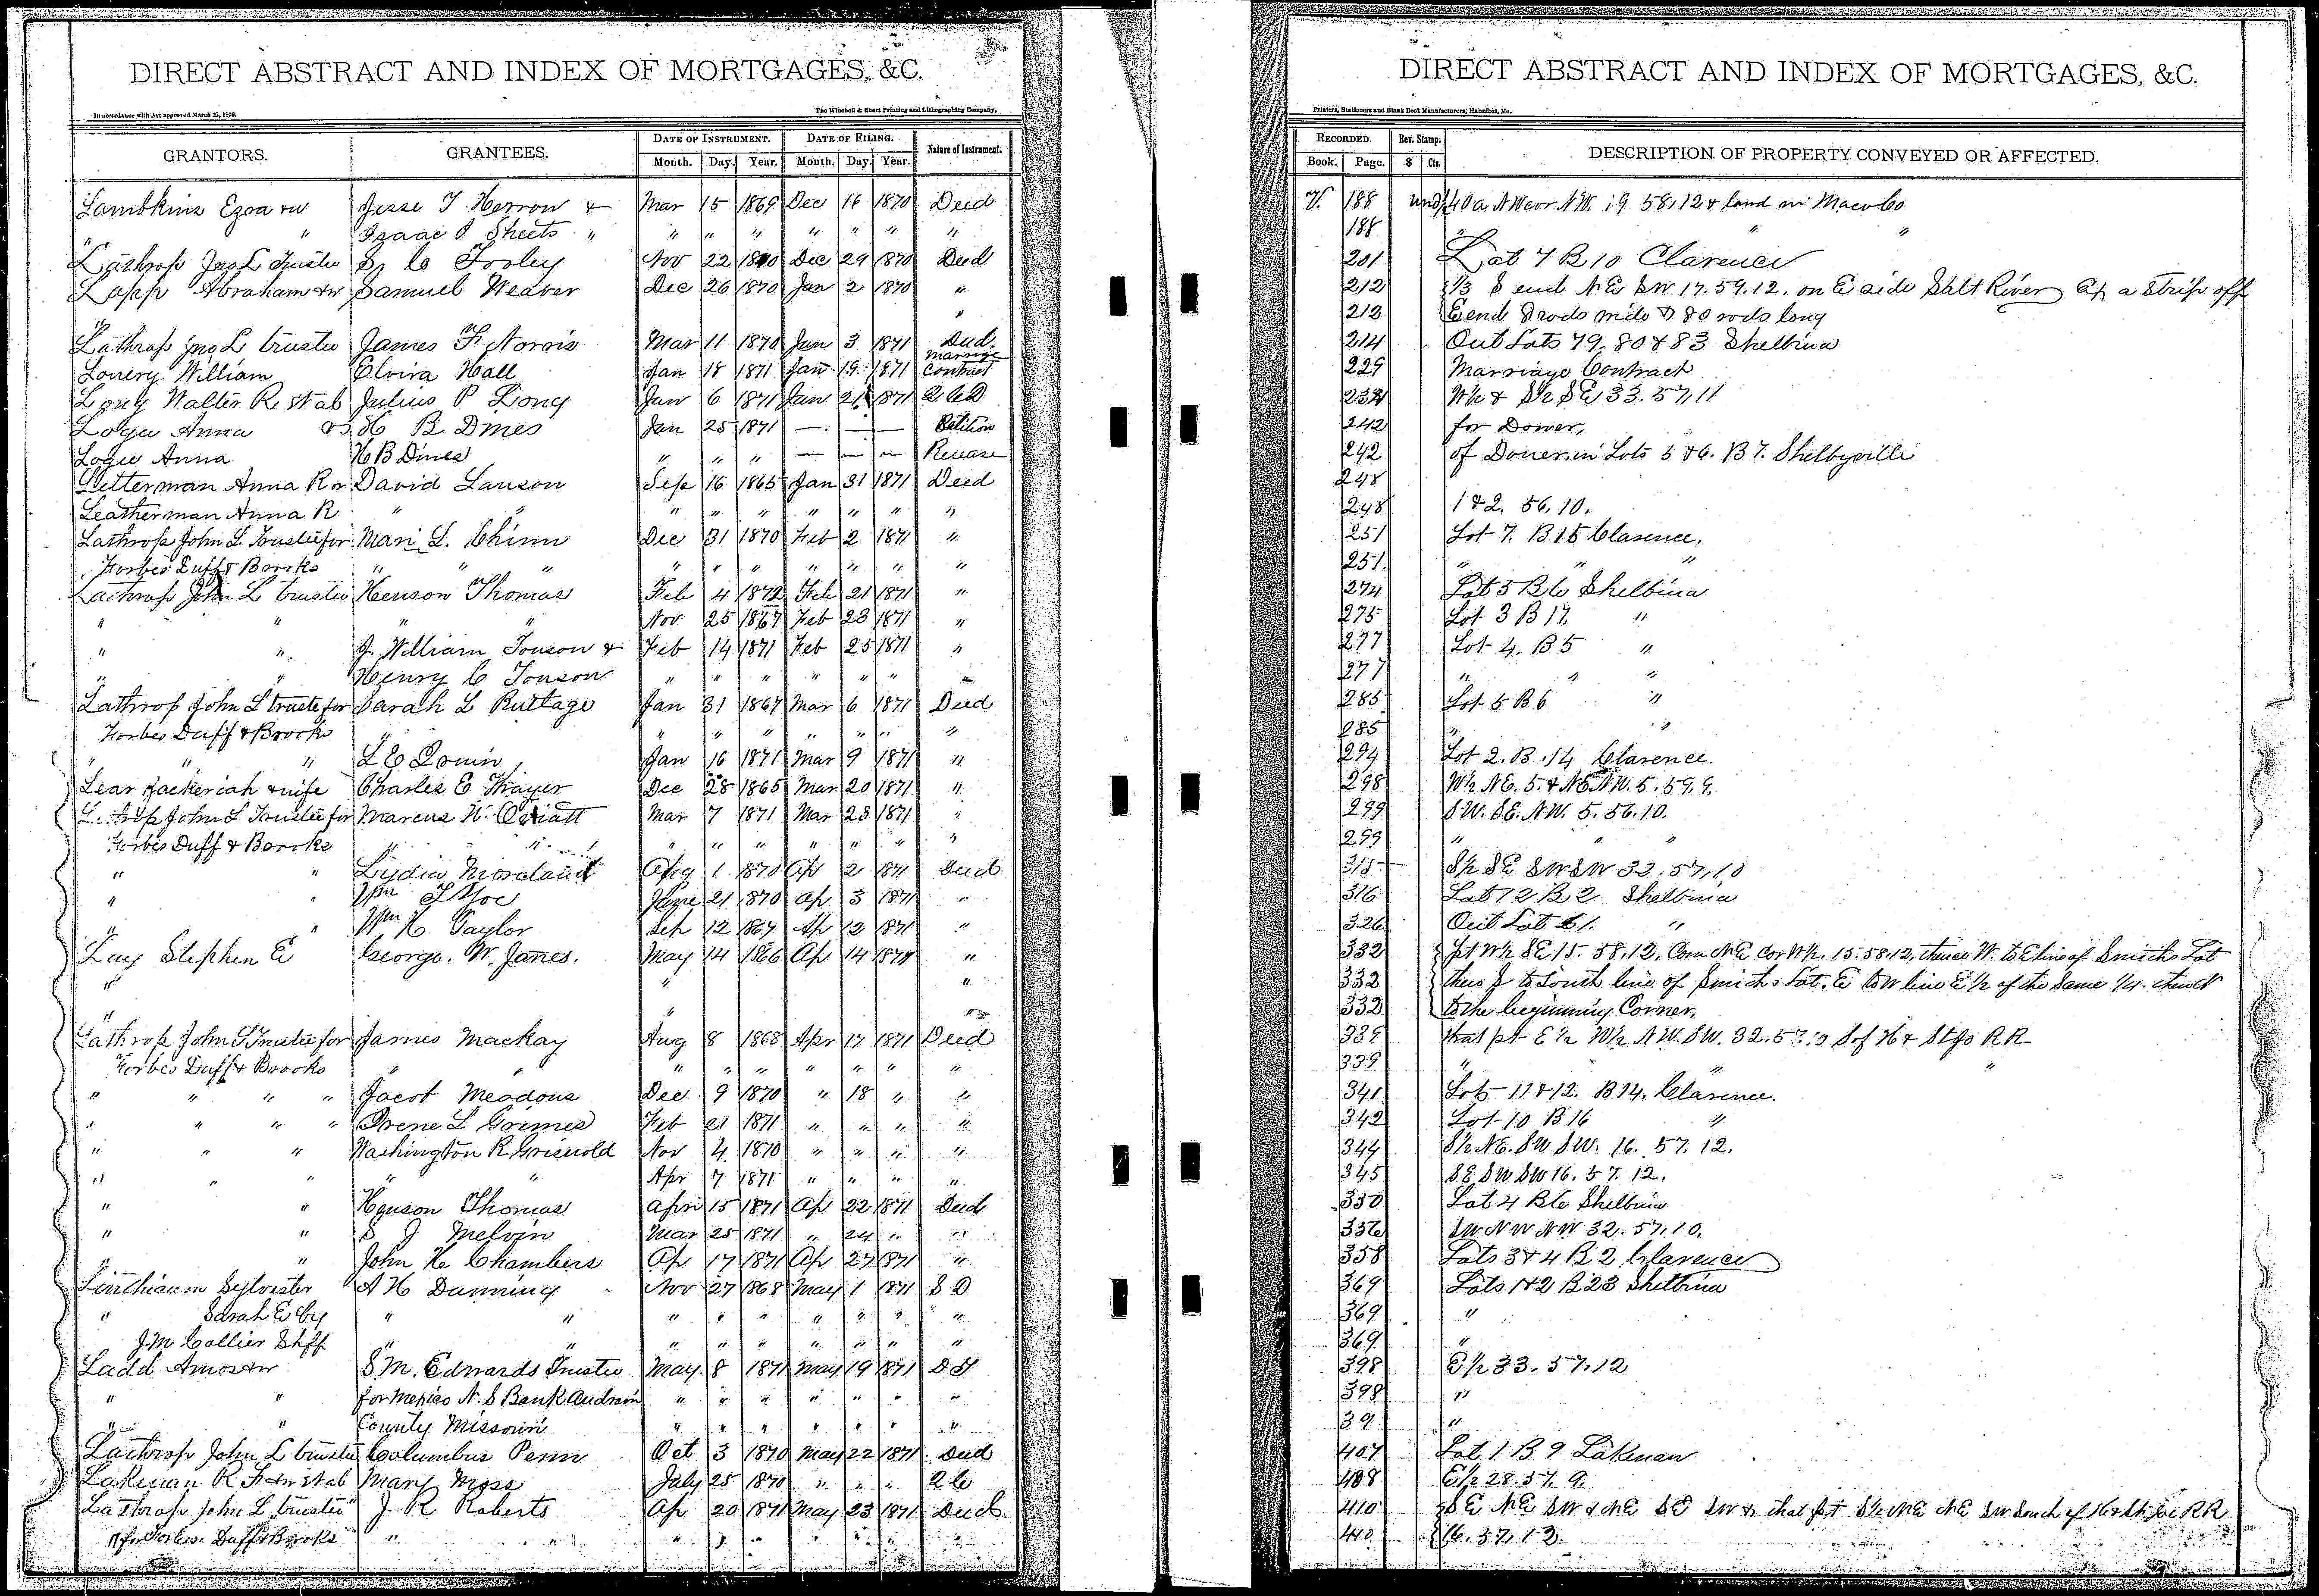 DIRECT ABSTRACT AND INDEX OF MORTGAGES, &C.
In accordance with Act approved March 25, 1870.
The Winchell & Ebert Printing and Lithographing Company,
GRANTORS. GRANTEES. DATE OF INSTRUMENT. DATE OF FILING. Nature of Instrument.
Month. Day. Year. Month. Day. Year.
Lambkins Ezra & w Jesse T. Herron & Mar 15 1869 Dec 16 1870 Deed
" " Isaac Sheets " " " " " " " "
Lathrop Jno L Trustee Tooley Nov 22 1870 Dec 29 1870 Deed
Lapp Abraham & w Samuel Weaver Dec 26 1870 Jan 2 1870 "
" "
Lathrop Jno L trustee James F Norris Mar 11 1870 Jan 3 1871 Deed.
Lowery. William Elvira Hall Jan 18 1871 Jan 19 1871 Marriage Contract
Long Walter R et al Julius P Long Jan 6 1871 Jan 21 1871 Q C D
Logu Anna vs. H B Dines Jan 25 1871 — — — Petition
Logue Anna H B Dines " " " — — — Release
Letterman Anna R David Lawson Sep 16 1865 Jan 31 1871 Deed
Leatherman Anna R " " " " " " " " "
Lathrop John L. Trustee for Mari L. Chinn Dec 31 1870 Feb 2 1871 "
Forbes Duff & Brooks " " " " " " " " " "
Lathrop John L trustee Henson Thomas Feb 4 1872 Feb 21 1871 "
" " " " Nov 25 1867 Feb 23 1871 "
" " J. William Touson & Feb 14 1871 Feb 25 1871 "
" " Henry C Touson " " " " " " "
Lathrop John L trustee for Sarah L Ruttage Jan 31 1867 Mar 6 1871 Deed
Forbes Duff & Brooks " " " " " " " "
" " L E Irwin Jan 16 1871 Mar 9 1871 "
Lear Zackeriah & wife Charles E Thayer Dec 28 1865 Mar 20 1871 "
Lathrop John L Trustee for Marcus H. Mar 7 1871 Mar 23 1871 "
Forbes Duff & Brooks " " " " " " " " "
" " Lydia Moreland Aug 1 1870 Ap 2 1871 Deed
" " Wm June 21 1870 Ap 3 1871 "
" " Wm H Taylor Sep 12 1867 Ap 12 1871 "
Lay Stephen E George. W. Janes. May 14 1866 Ap 14 1871 "
" " "
" " "
Lathrop John L Trustee for James Mackay Aug 8 1868 Apr 17 1871 Deed
Forbes Duff & Brooks " " " " " " " " "
" " " " Jacob Meadows Dec 9 1870 " 18 " "
" " " " Irene L Grimes Feb 21 1871 " " " "
" " " Washington R Griswold Nov 4 1870 " " " "
" " " " " Apr 7 1871 " " " "
" " Henson Thomas April 15 1871 Ap 22 1871 Deed
" " S J Melvin Mar 25 1871 " 24 " "
" " John H Chambers Ap 17 1871 Ap 27 1871 "
Linthicum Sylvester A H Dunning Nov 27 1868 May 1 1871 S D
" Sarah E by " " " " " " " " "
J. M Collier Shff " " " " " " " " "
Ladd Amos & w S M. Edwards Trustee May 8 1871 May 19 1871 D T
" " for Mexico N. S Bank Audrain " " " " " " "
" " County Missouri " " " " " " "
Lathrop John L trustee Columbus Penn Oct 3 1870 May 22 1871 Deed
Lakenan R F & w et al Mary Moss July 25 1870 " " " Q C
Lathrop John L trustee J R Roberts Ap 20 1871 May 23 1871 Deed
for Forbes Duff & Brooks " " " " " " " " "
DIRECT ABSTRACT AND INDEX OF MORTGAGES, &C.
Printers, Stationers and Blank Book Manufacturers; Hannibal, Mo.
RECORDED. Rev. Stamp. DESCRIPTION OF PROPERTY CONVEYED OR AFFECTED.
Book. Page. $ Cts.
V. 188 und 40a NW cor NW. 19 58,12 & land in Macon Co
188 " "
201 Lot 7 B 10 Clarence
212 1/3 S end N E SW. 17. 59. 12. on E side Salt River Ex a strip off
213 E end 8 rods wide & 80 rods long
214 Out Lots 79. 80 & 83 Shelbina
229 Marriage Contract
232 W½ & S½ SE 33. 57. 11
242 for Dower,
242 of Dower in Lots 5 & 6. B 7. Shelbyville
248
248 1 & 2. 56. 10.
251 Lot 7. B 15 Clarence.
251. " "
274 Lot 5 B 6 Shelbina
275 Lot 3 B 17. "
277 Lot 4. B 5 "
277 " " "
285 Lot 5 B 6 "
285 " "
294 Lot 2. B. 14 Clarence.
298 W½ NE. 5. & NE NW. 5. 59. 9.
299 SW. SE. NW. 5. 56. 10.
299 " " "
315 S½ SE SW SW 33. 57, 10
316 Lot 12 B 2 Shelbina
326 Out Lot 61. "
332 pt W½ SE 15. 58. 12. Com NE cor W½. 15. 58. 12, thence W. to E line of Smiths Lot
332 thence S to South line of Smiths Lot. E to W line E½ of the Same ¼. thence N
332 to the beginning Corner.
339 that pt E½ W½ NW. SW. 32. 57. 10 S of H & St Jo R R
339 " " "
341 Lots 11 & 12. B 14. Clarence.
342 Lot 10 B 16 "
344 S½ NE. SW SW. 16. 57. 12.
345 SE SW SW 16. 57. 12.
350 Lot 4 B 6 Shelbina
356 SW NW NW 32. 57, 10.
358 Lots 3 & 4 B 2 Clarence
369 Lots 1 & 2 B 23 Shelbina
369 "
369. "
398 E½ 33. 57. 12
398 "
39 "
407 Lot 1 B 9 Lakenan
408 E½ 28. 57. 9.
410 SE NE SW & NE SE SW & that pt S½ NE NE SW South of H & St Joe R R
410 16. 57, 12.